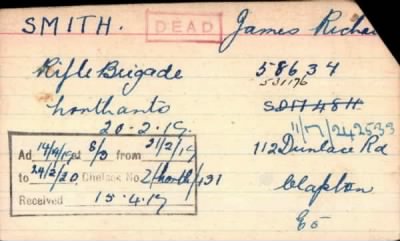 SMITH. DEAD James Richar
Rifle Brigade 58634
531176
Northants
20-2-19. 11/M/242533
112 Dunlace Rd
Ad 14/4/19 at 8/3 from 21/2/19
to 24/2/20 Chelsea No 2/North/431
Received 15.4.19
Clapton
E5